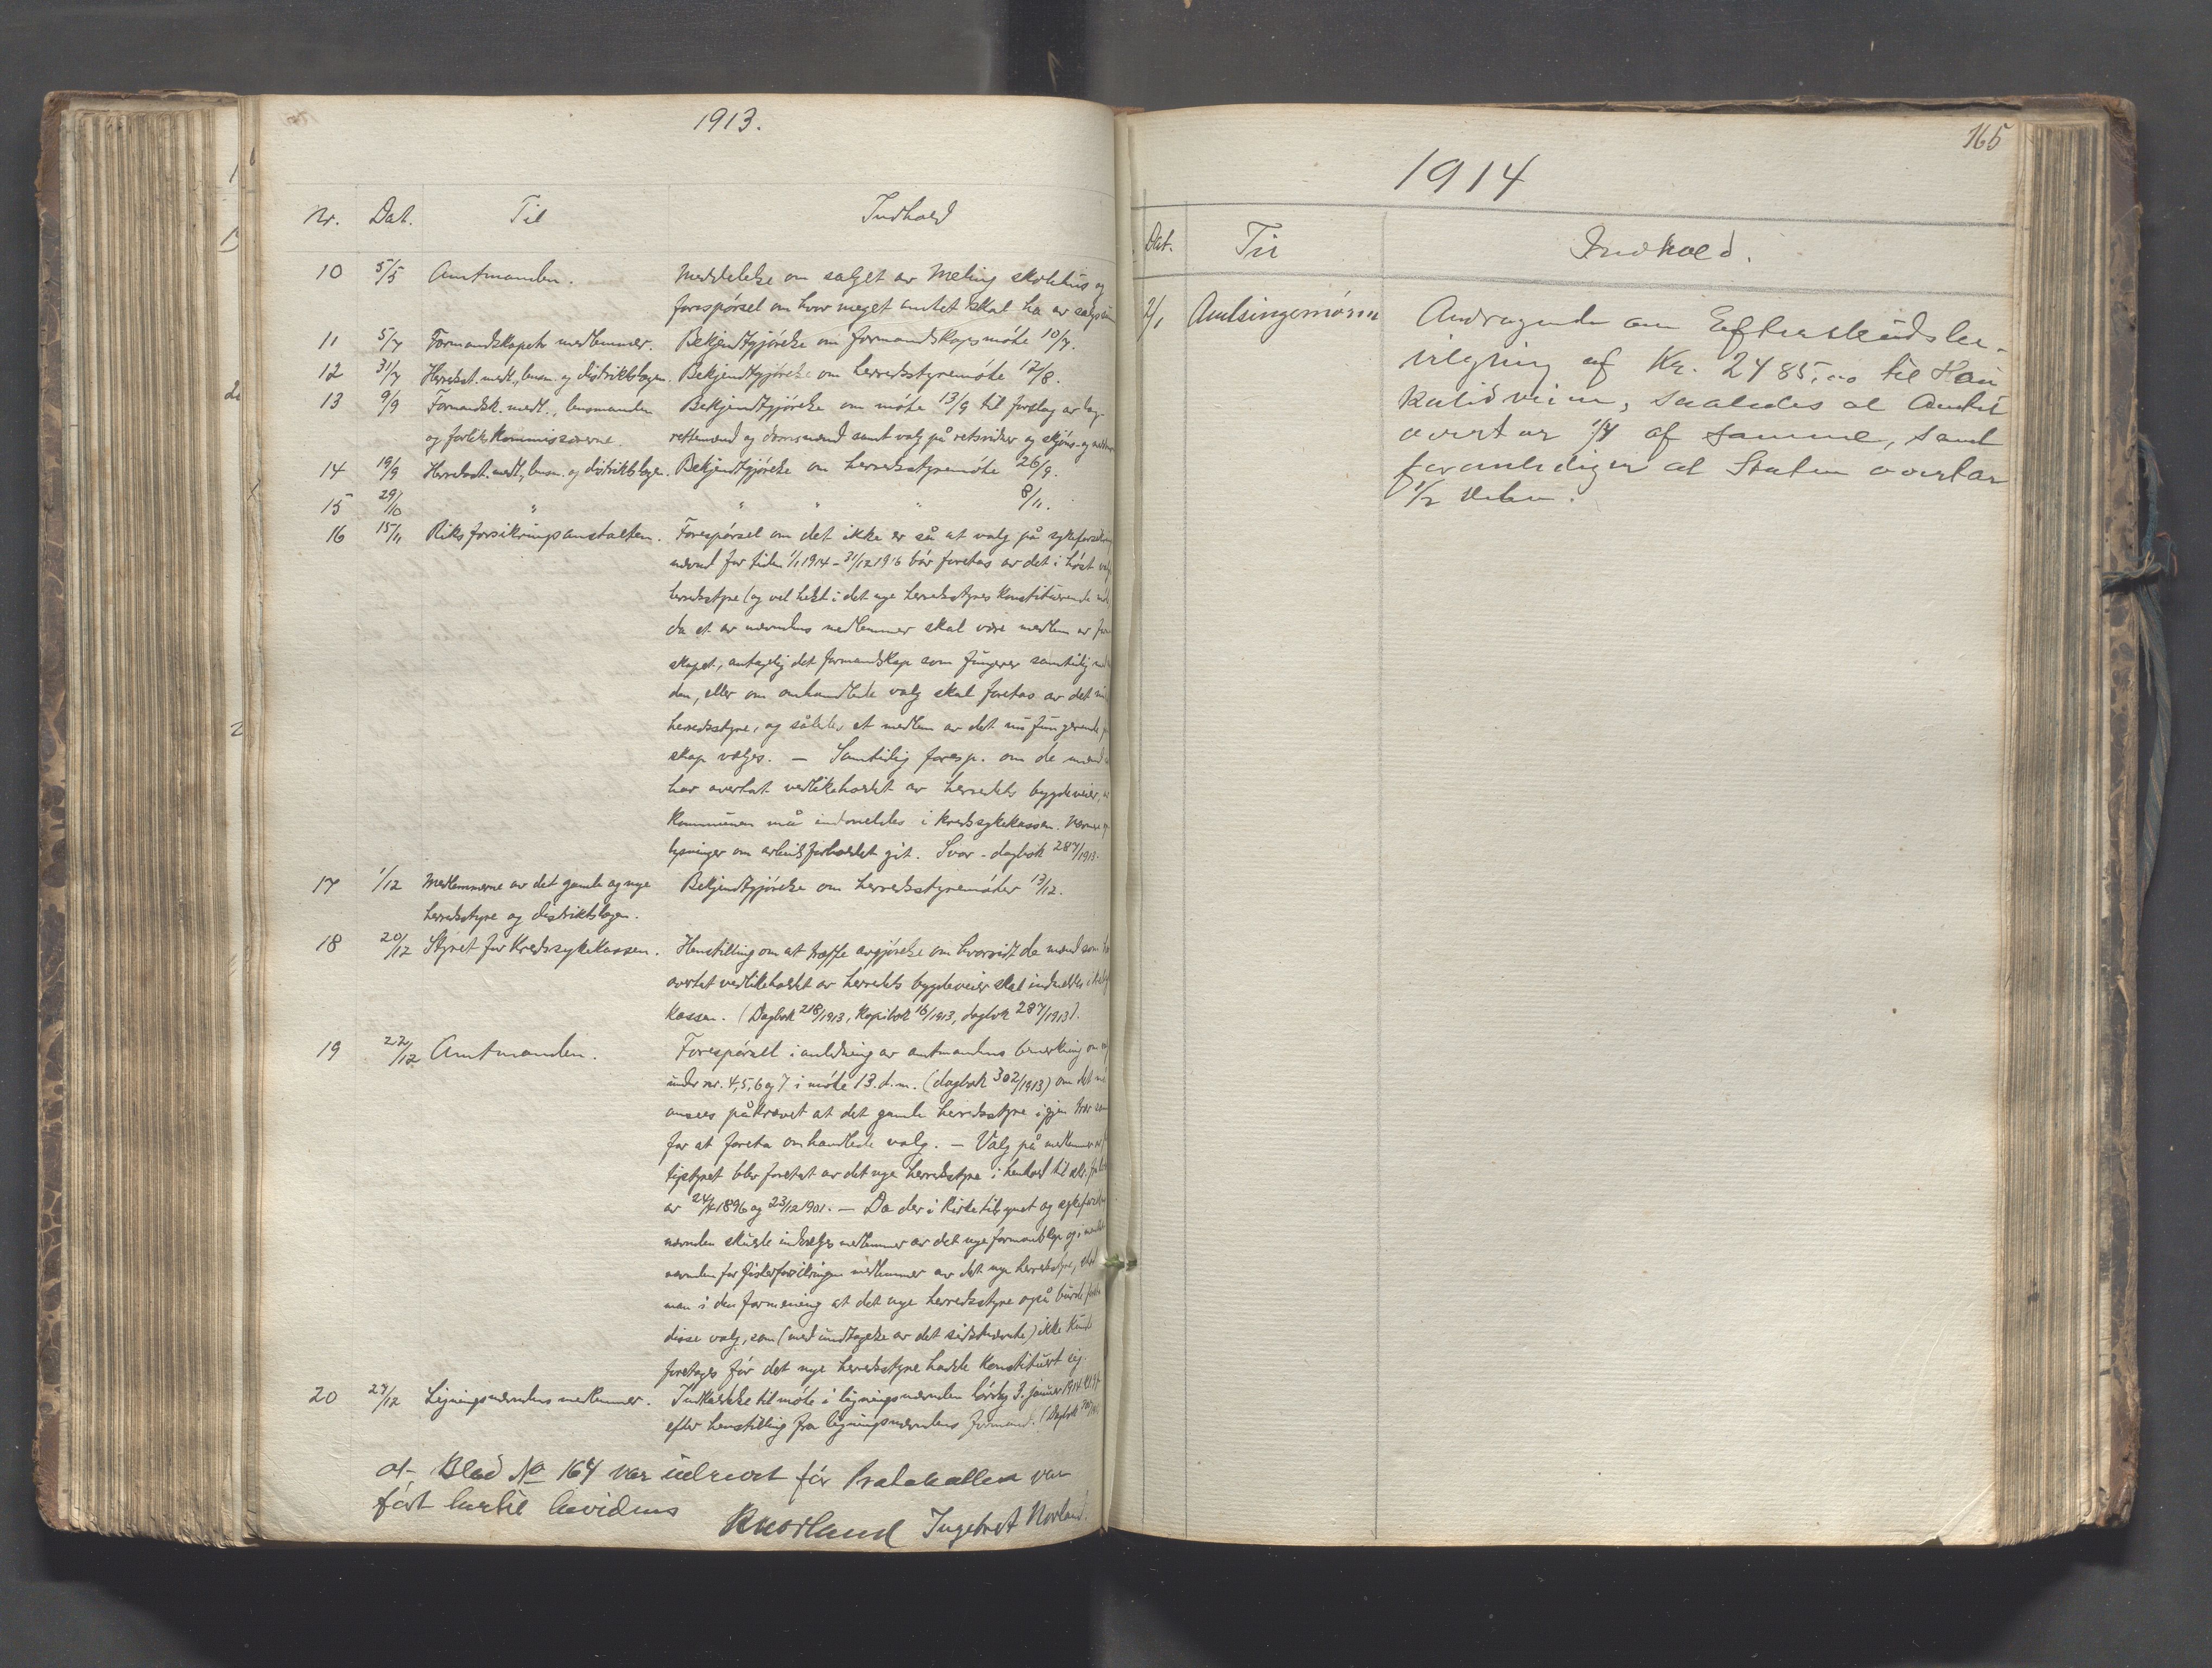 1913.
Nr. Dat. Til Indhold
10 5/5 Amtmanden. Meddelelse om salget av Meling skolehus og
forespörsel om hvor meget amtet skal ha av
11 5/7 Formandskapets medlemmer. Bekjendtgjörelse om formandskapsmöte 10/7.
12 31/7 Herredsst. medl., lensm. og distriktslægen. Bekjendtgjörelse om herredsstyremöte 12/8.
13 9/9 Formandsk. medl., lensmanden Bekjendtgjörelse om möte 13/9 til forslag av lag-
og forlikskommissærerne. rettemænd og domsmænd samt valg på retsvidner og skjöns- og
14 19/9 Herredsst. medl., lensm. og distriktslægen. Bekjendtgjörelse om herredsstyremöte 26/9.
15 29/10 " " " " 8/11.
16 15/11 Riksforsikringsanstalten. Forespörsel om det ikke er så at valg på
nævnd for tiden 1/1 1914 - 31/12 1916 bör foretas av det i höst
herredsstyre (og vel helst i det nye herredsstyres konstituerende
da et av nævndens medlemmer skal være medlem av
skapet, antagelig det formandskap som fungerer samtidig
den, eller om omhandlede valg skal foretas av det
herredsstyre, og således et medlem av det nu fungerende
skap vælges. — Samtidig foresp. om de mænd
har overtat vedlikeholdet av herredets bygdeveier,
kommunen må indmeldes i kredssykekassen. Nærmere
lysninger om arbeidsforholdet git. Svar - dagbok 287/1913.
17 1/12 Medlemmerne av det gamle og nye Bekjendtgjörelse om herredsstyremöter 13/12.
herredsstyre og distriktslægen.
18 20/12 Styret for kredssykekassen. Henstilling om at træffe avgjörelse om hvorvidt de mænd som
overtat vedlikeholdet av herredets bygdeveier skal indmeldes i
kassen. (Dagbok 218/1913, kopibok 16/1913, dagbok 287/1913).
19 22/12 Amtmanden. Forespörsel i anledning av amtmandens bemerkning om
under nr. 4, 5, 6 og 7 i möte 13. d. m. (dagbok 302/1913) om det
ansees påkrævet at det gamle herredsstyre igjen
for at foreta omhandlede valg. — Valg på medlemmer
styret blev foretat av det nye herredsstyre i henhold til
av 1896 og 23/12 1901. — Da der i kirketilsynet og
nævnden skulde indvælges medlemmer av det nye formandskap og i
nævnden for fiskerforsikringen medlemmer av det nye herredsstyre,
man i den formening at det nye herredsstyre også burde
disse valg, som (med undtagelse av det sidstnævnte) ikke kunde
foretages för det nye herredsstyre hadde konstituert sig.
20 27/12 Ligningsnævndens medlemmer. Indkaldelse til möte i ligningsnævnden lördag 3. januar 1914
efter henstilling fra ligningsnævndens formand. (Dagbok
at Blad No 164 var udrevet för Protokollen var
fört hertil bevidnes
Ingebret Norland.
165
1914
Dat. Til Indhold.
2/1 Amtsingeniøren Andragende om Efterskudsbe-
vilgning af Kr. 2485,00 til Hau
kalidveien, saaledes at Amtet
overtar 1/4 af samme, samt
foranlediger at Staten overtar
1/2 delen.